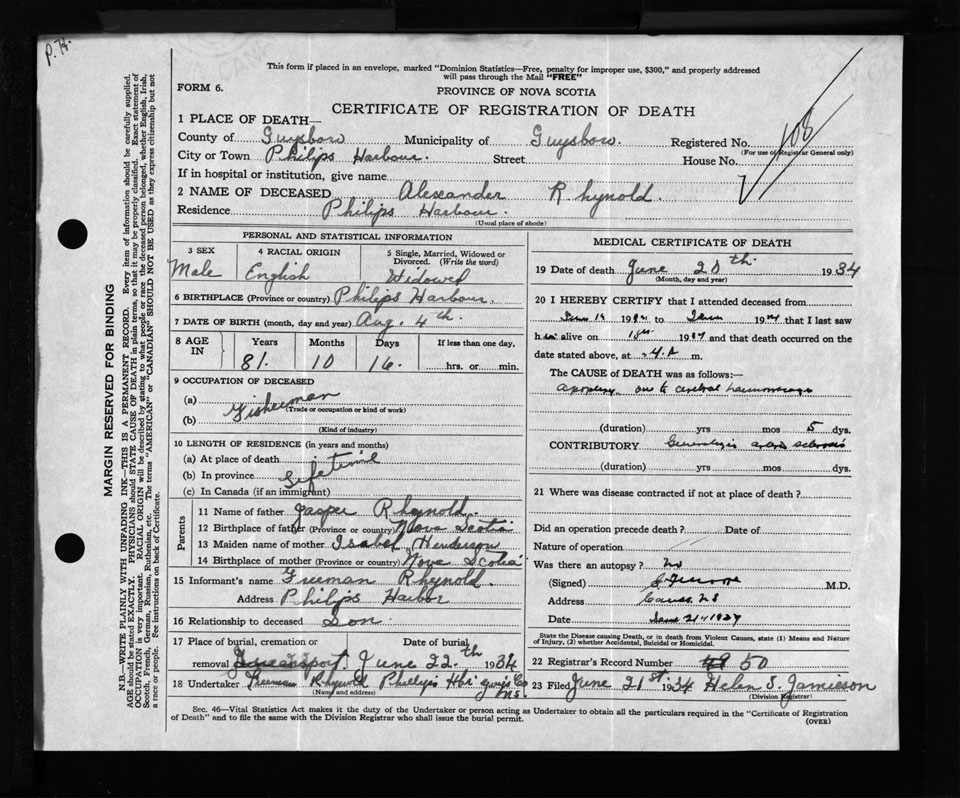 P. H.
This form if placed in an envelope, marked "Dominion Statistics—Free, penalty for improper use, $300," and properly addressed
will pass through the Mail "FREE"
FORM 6.
PROVINCE OF NOVA SCOTIA
CERTIFICATE OF REGISTRATION OF DEATH
1 PLACE OF DEATH—
County of Guysboro Municipality of Guysboro. Registered No. 108
(For use of Registrar General only)
City or Town Philips Harbour. Street House No.
If in hospital or institution, give name
2 NAME OF DECEASED Alexander Rhynold.
Residence Philips Harbour.
(Usual place of abode)
PERSONAL AND STATISTICAL INFORMATION
3 SEX 4 RACIAL ORIGIN 5 Single, Married, Widowed or
Divorced. (Write the word)
Male English Widowed
6 BIRTHPLACE (Province or country) Philips Harbour.
7 DATE OF BIRTH (month, day and year) Aug. 4th.
8 AGE IN Years Months Days If less than one day,
81. 10 16. hrs. or min.
9 OCCUPATION OF DECEASED
(a) Fisherman
(Trade or occupation or kind of work)
(b)
(Kind of industry)
10 LENGTH OF RESIDENCE (in years and months)
(a) At place of death
(b) In province Lifetime
(c) In Canada (if an immigrant)
Parents
11 Name of father Jasper Rhynold.
12 Birthplace of father (Province or country) Nova Scotia
13 Maiden name of mother Isabel Henderson
14 Birthplace of mother (Province or country) Nova Scotia
15 Informant's name Freeman Rhynold.
Address Philips Harbor
16 Relationship to deceased Son.
17 Place of burial, cremation or Date of burial
removal Queensport. June 22th 1934
18 Undertaker Freeman Rhynold Phillips Hbr Guys Co
N.S.
(Name and address)
MEDICAL CERTIFICATE OF DEATH
19 Date of death June 20th 1934
(Month, day and year)
20 I HEREBY CERTIFY that I attended deceased from
19 to 19 that I last saw
h alive on 18th 19 and that death occurred on the
date stated above, at 4 A m.
The CAUSE of DEATH was as follows:
apoplexy due to cerebral haemorrhage
(duration) yrs mos 5 dys.
CONTRIBUTORY sclerosis
(duration) yrs mos dys.
21 Where was disease contracted if not at place of death?
Did an operation precede death? Date of
Nature of operation
Was there an autopsy? no
(Signed) M.D.
Address Canso NS
Date June 21 19
State the Disease causing Death, or in death from Violent Causes, state (1) Means and Nature
of Injury, (2) whether Accidental, Suicidal or Homicidal.
22 Registrar's Record Number 50
23 Filed June 21st 1934 Helen S. Jamieson
(Division Registrar)
Sec. 46—Vital Statistics Act makes it the duty of the Undertaker or person acting as Undertaker to obtain all the particulars required in the "Certificate of Registration
of Death" and to file the same with the Division Registrar who shall issue the burial permit.
(OVER)
MARGIN RESERVED FOR BINDING
N.B.—WRITE PLAINLY WITH UNFADING INK—THIS IS A PERMANENT RECORD. Every item of information should be carefully supplied.
AGE should be stated EXACTLY. PHYSICIANS should STATE CAUSE OF DEATH in plain terms, so that it may be properly classified. Exact statement of
OCCUPATION is very important. RACIAL ORIGIN will be described by stating to what people or race the deceased person belonged, whether English, Irish,
Scotch, French, German, Russian, Ruthenian, etc. The terms "AMERICAN" or "CANADIAN" SHOULD NOT BE USED as they express citizenship but not
a race or people. See instructions on back of Certificate.